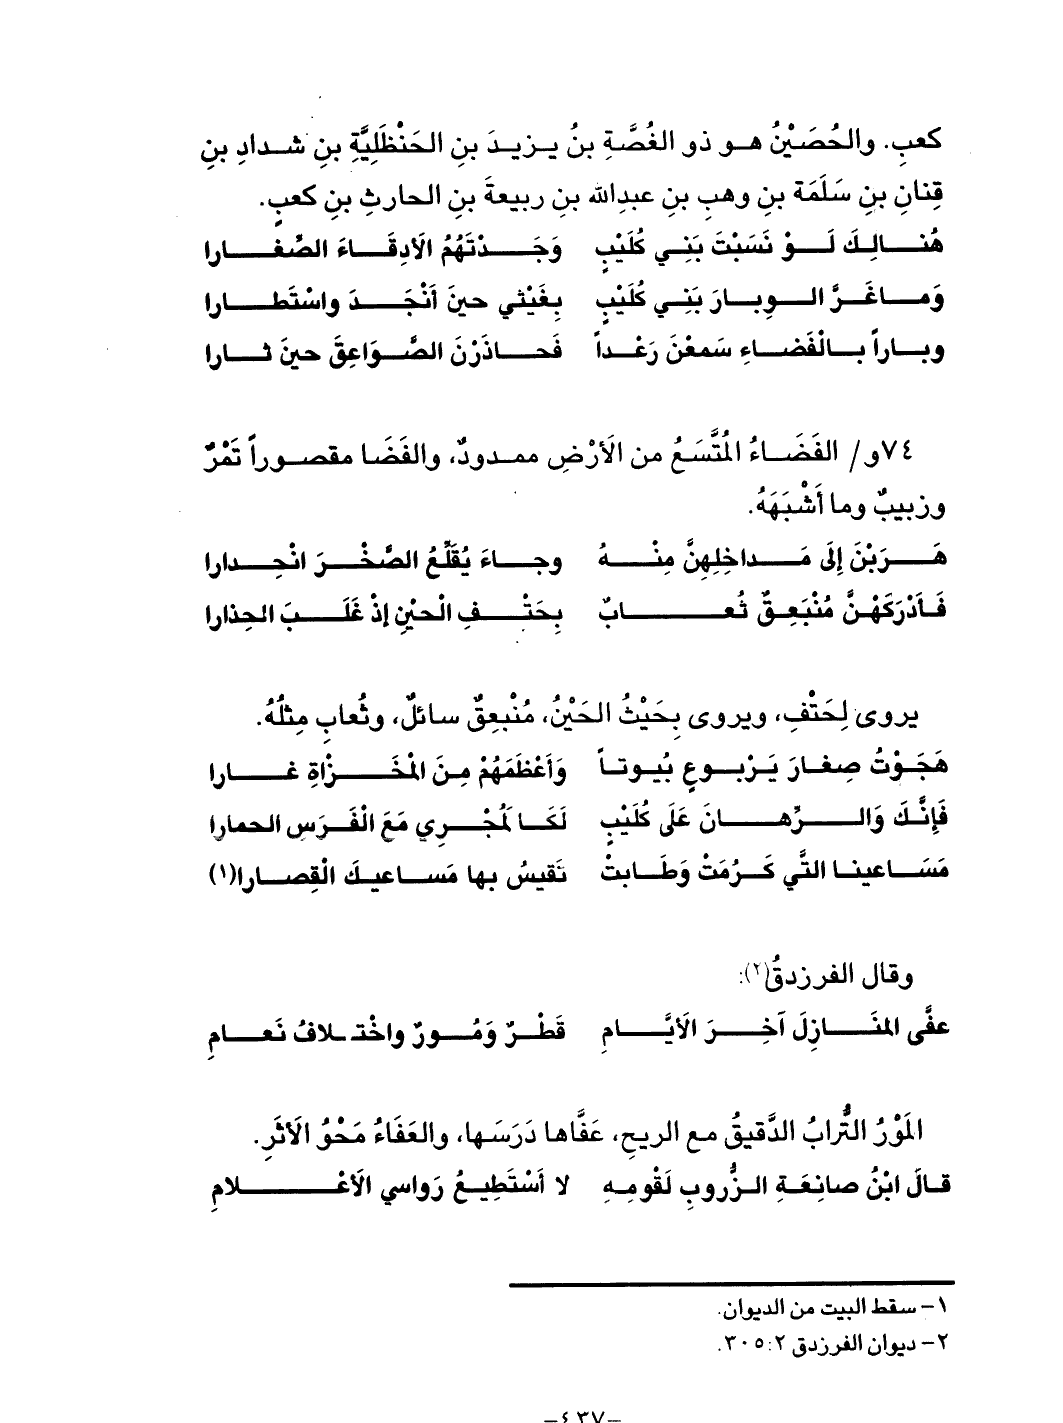 كعبٍ. والحُصَيْنُ هو ذو الغُصَّةِ بنُ يزيدَ بنِ الحَنْظَلِيَّةِ بنِ شدادِ بنِ
قِنانِ بنِ سَلَمَة بنِ وهبِ بنِ عبدِالله بنِ ربيعةَ بنِ الحارثِ بنِ كعبٍ.
هُنالِكَ لَوْ نَسَبْتَ بَنِي كُلَيْبٍ    وَجَدْتَهُمُ الَادِقَاءَ الصِّغارا
وَماغَرَّ الوِبارَ بَنِي كُلَيْبٍ    بِغَيْثي حينَ اَنْجَدَ واسْتَطارا
وباراً بالْفَضاءِ سَمعْنَ رَعْداً    فَحاذَرْنَ الصَّوَاعِقَ حينَ ثارا
٧٤و/ الفَضَاءُ المُتَّسَعُ من الَأرْضِ ممدودٌ، والفَضَا مقصوراً تَمْرٌ
وزبيبٌ وما أشْبَهَهُ.
هَرَبْنَ إلَى مَداخِلِهِنَّ مِنْهُ    وجاءَ يُقَلِّعُ الصَّخْرَ انْحِدارا
فَاَدْرَكَهْنَّ مُنْبَعِقٌ ثُعابٌ    بِحَتْفِ الْحيْنِ إذْ غَلَبَ الحِذارا
يروى لِحَتْفِ، ويروى بِحَيْثُ الحَيْنُ، مُنْبعِقٌ سائلٌ، وثُعابِ مِثلُهُ.
هَجَوْتُ صِغارَ يَرْبوعٍ بُيوتاً    وَاَعْظَمَهُمْ مِنَ الْمْخَزْاةِ عارا
فَإنَّكَ وَالرِّهانَ عَلَى كُلَيْبٍ    لَكَالْمُجْرِي مَعَ الْفَرَسِ الحمارا
مَسَاعينا التَّي كَرُمَتْ وَطَابتْ    نَقيسُ بها مَساعيكَ الْقِصارا(١)
وقال الفرزدقُ(٢):
عفَّى المنَازِلَ اَخِرَ الَايَّامِ    قَطْرٌ وَمُورٌ واخْتلافُ نَعامِ
المَوْرُ التُّرابُ الدَّقيقُ مع الريحِ، عَفَّاها دَرَسَها، والعَفَاءُ مَحْوُ الَاثَرِ.
قالَ ابْنُ صانِعَةِ الزُّروبِ لَقْومِهِ    لا اَسْتَطِيعُ رَواسي الَاعْلامِ
١- سقط البيت من الديوان.
٢- ديوان الفرزدق ٣٠٥:٢.
-٤٣٧-